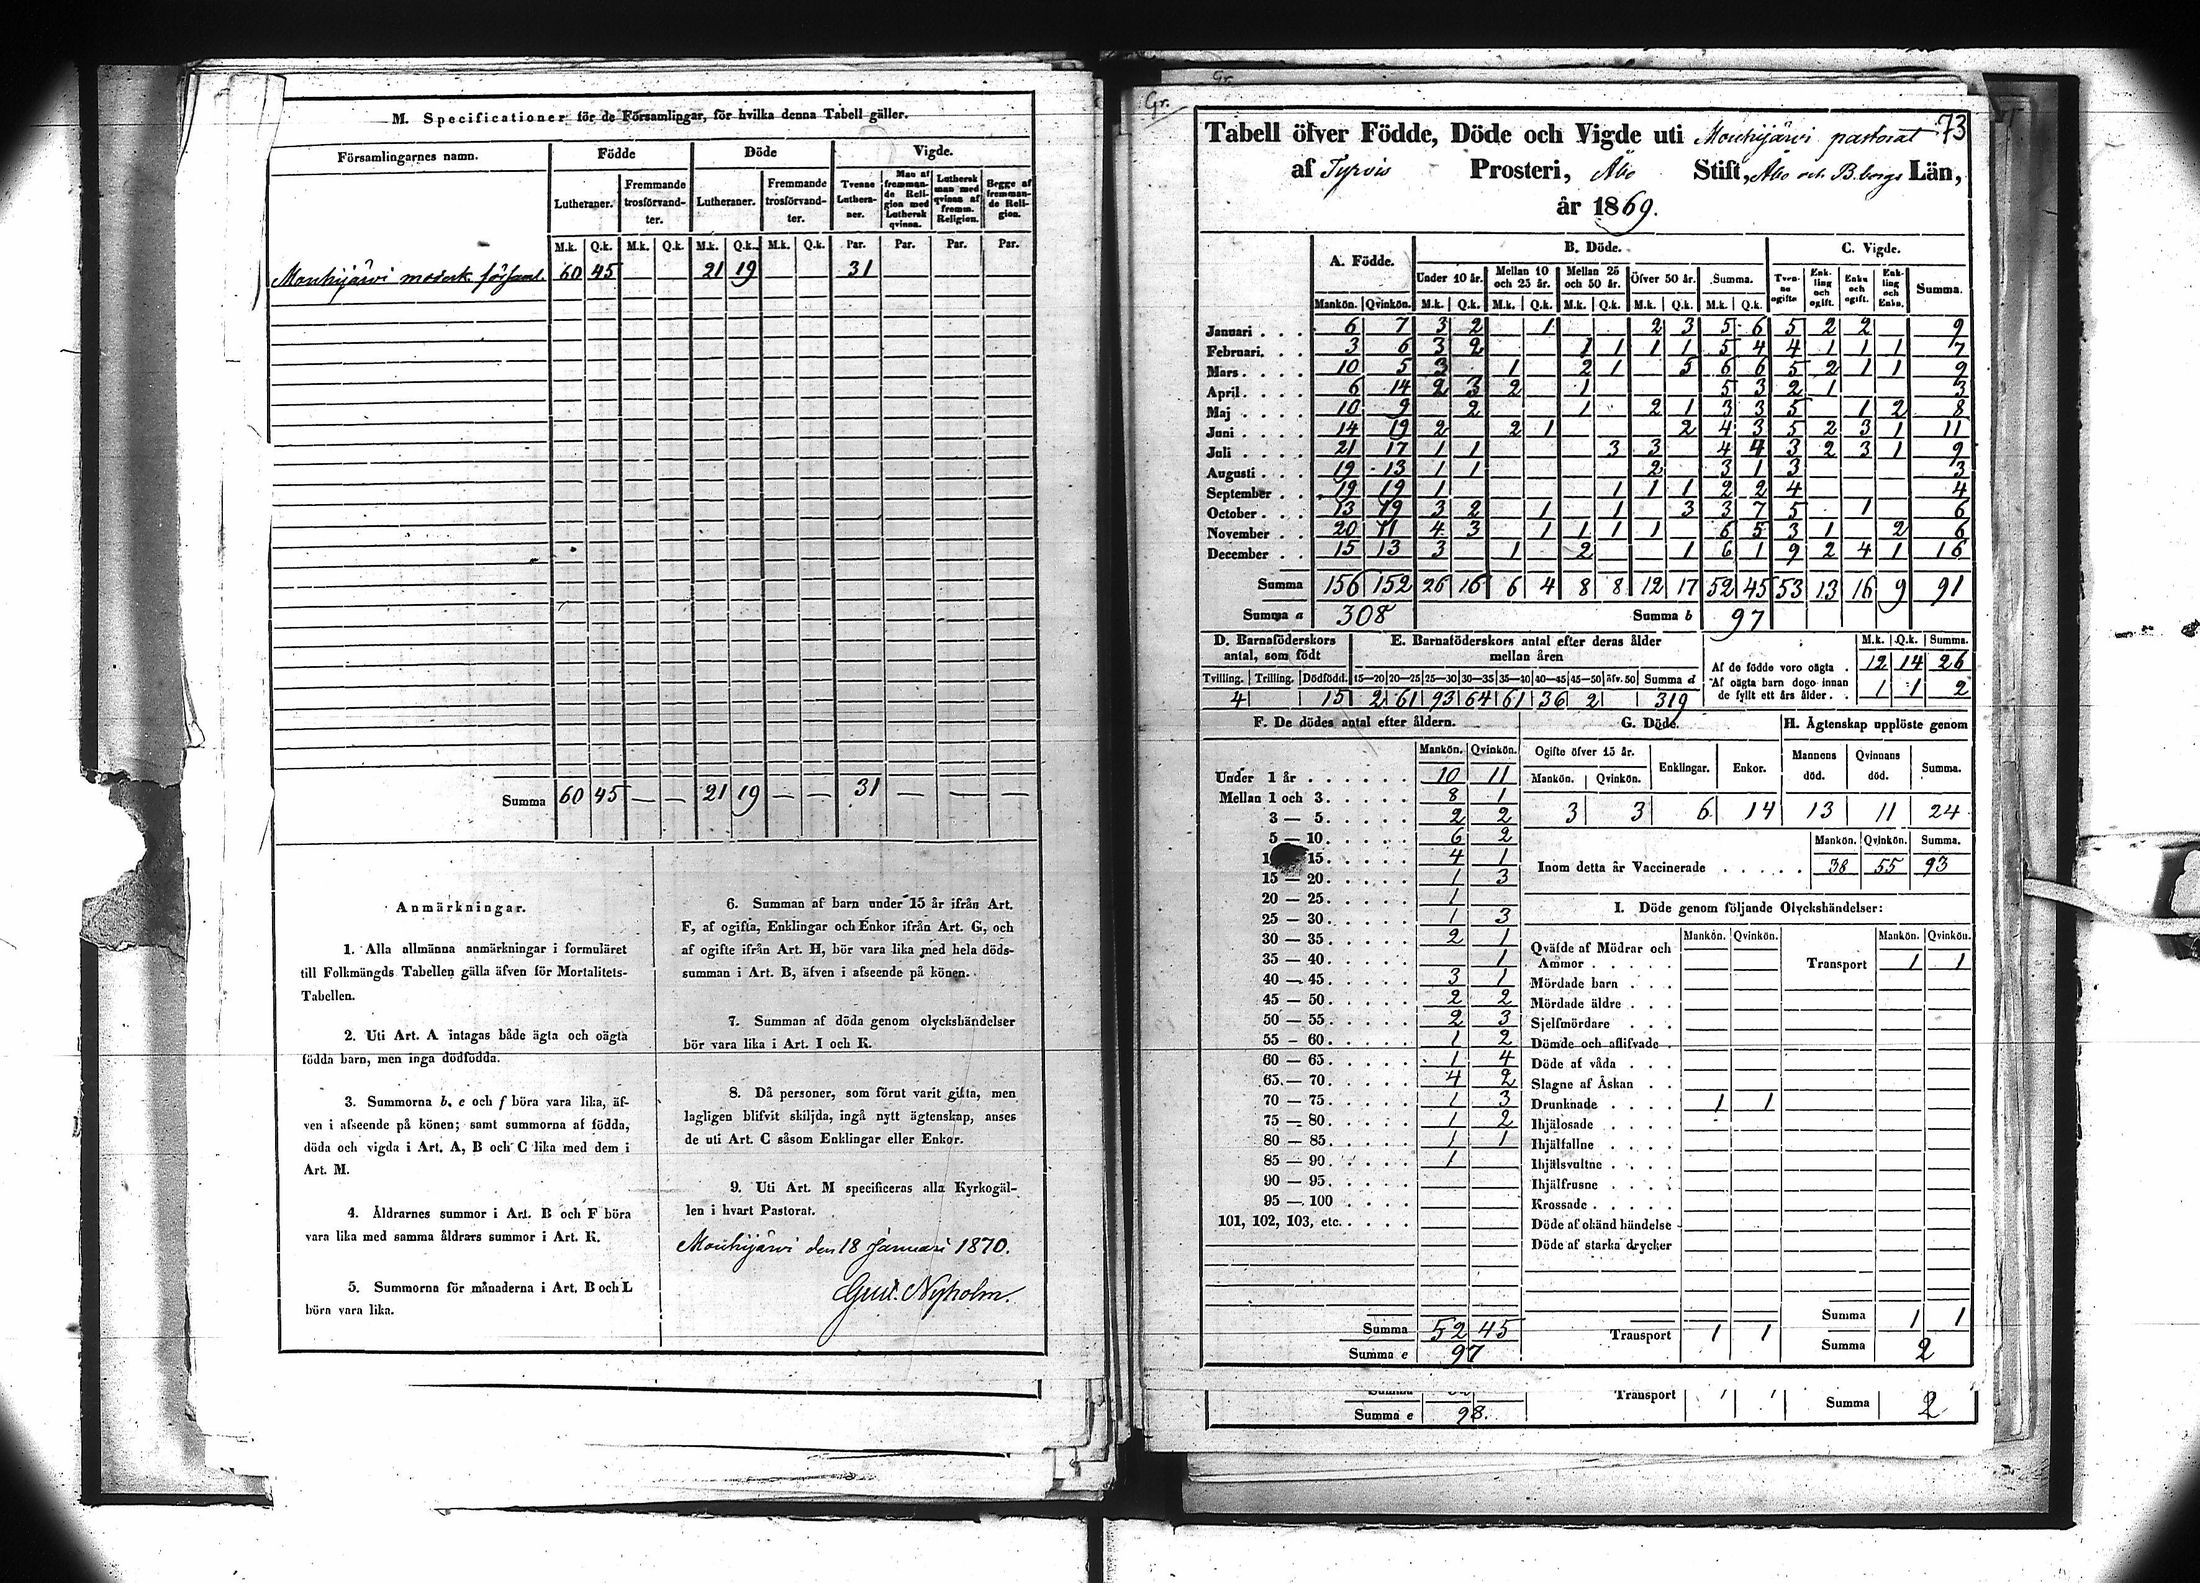 M. Specificationer för de Församlingar, för hvilka denna Tabell gäller.
Församlingarnes namn. Födde Döde Vigde.
Lutheraner. Fremmande trosförvandter. Lutheraner. Fremmande trosförvandter. Tvenne Lutheraner. Man af fremmande Religion med Luthersk qvinna. Luthersk man med qvinna af fremm. Religion. Begge af fremmande Religion.
M.k. Q.k. M.k. Q.k. M.k. Q.k. M.k. Q.k. Par. Par. Par. Par.
Mouhijärvi moderk. församl. 60 45 21 19 31
Summa 60 45 — — 21 19 — — 31 — — —
Anmärkningar.
1. Alla allmänna anmärkningar i formuläret
till Folkmängds Tabellen gälla äfven för Mortalitets-
Tabellen.
2. Uti Art. A intagas både ägta och oägta
födda barn, men inga dödfödda.
3. Summorna b, e och f böra vara lika, äf-
ven i afseende på könen; samt summorna af födda,
döda och vigda i Art. A, B och C lika med dem i
Art. M.
4. Åldrarnes summor i Art. B och F böra
vara lika med samma åldrars summor i Art. K.
5. Summorna för månaderna i Art. B och L
böra vara lika.
6. Summan af barn under 15 år ifrån Art.
F, af ogifta, Enklingar och Enkor ifrån Art. G, och
af ogifte ifrån Art. H, bör vara lika med hela döds-
summan i Art. B, äfven i afseende på könen.
7. Summan af döda genom olyckshändelser
bör vara lika i Art. I och K.
8. Då personer, som förut varit gifta, men
lagligen blifvit skiljda, ingå nytt ägtenskap, anses
de uti Art. C såsom Enklingar eller Enkor.
9. Uti Art. M specificeras alla Kyrkogäl-
len i hvart Pastorat.
Mouhijärvi den 18 Januari 1870.
Gust. Nyholm.
Gr.
Gr.
73
Tabell öfver Födde, Döde och Vigde uti Mouhijärvi pastorat
af Tyrvis Prosteri, Åbo Stift, Åbo och B.borgs Län,
år 1869.
A. Födde. B. Döde. C. Vigde.
Under 10 år. Mellan 10 och 25 år. Mellan 25 och 50 år. Öfver 50 år. Summa. Tvenne ogifte Enkling och ogift. Enka och ogift. Enkling och Enka. Summa.
Mankön. Qvinkön. M.k. Q.k. M.k. Q.k. M.k. Q.k. M.k. Q.k. M.k. Q.k.
Januari 6 7 3 2 1 2 3 5 6 5 2 2 9
Februari. 3 6 3 2 1 1 1 1 5 4 4 1 1 1 7
Mars 10 5 3 1 2 1 5 6 6 5 2 1 1 9
April 6 14 2 3 2 1 5 3 2 1 3
Maj 10 9 2 1 2 1 3 3 5 1 2 8
Juni 14 19 2 2 1 2 4 3 5 2 3 1 11
Juli 21 17 1 1 3 3 4 4 3 2 3 1 9
Augusti 19 13 1 1 2 3 1 3 3
September 19 19 1 1 1 1 2 2 4 4
October 13 19 3 2 1 1 3 3 7 5 1 6
November 20 11 4 3 1 1 1 1 6 5 3 1 2 6
December 15 13 3 1 2 1 6 1 9 2 4 1 16
Summa 156 152 26 16 6 4 8 8 12 17 52 45 53 13 16 9 91
Summa a 308 Summa b 97
D. Barnaföderskors antal, som födt
E. Barnaföderskors antal efter deras ålder mellan åren
M.k. Q.k. Summa.
Af de födde voro oägta 12 14 26
Af oägta barn dogo innan de fyllt ett års ålder 1 1 2
Tvilling. Trilling. Dödfödd. 15—20 20—25 25—30 30—35 35—40 40—45 45—50 öfv. 50 Summa d
4 15 2 61 93 64 61 36 2 319
F. De dödes antal efter åldern. G. Döde. H. Ägtenskap upplöste genom
Mankön. Qvinkön. Ogifte öfver 15 år. Enklingar. Enkor. Mannens död. Qvinnans död. Summa.
Mankön. Qvinkön.
3 3 6 14 13 11 24
Mankön. Qvinkön. Summa.
Inom detta år Vaccinerade 38 55 93
Under 1 år 10 11
Mellan 1 och 3. 8 1
3 — 5. 2 2
5 — 10. 6 2
15. 4 1
15 — 20. 1 3
20 — 25. 1
25 — 30. 1 3
30 — 35. 2 1
35 — 40. 1
40 — 45. 3 1
45 — 50. 2 2
50 — 55. 2 3
55 — 60. 1 2
60 — 65. 1 4
65 — 70. 4 2
70 — 75. 1 3
75 — 80. 1 2
80 — 85. 1 1
85 — 90. 1
90 — 95.
95 — 100
101, 102, 103, etc.
Summa 52 45
Summa e 97
I. Döde genom följande Olyckshändelser:
Mankön. Qvinkön. Mankön. Qvinkön.
Qväfde af Mödrar och Ammor
Transport 1 1
Mördade barn
Mördade äldre
Sjelfmördare
Dömde och aflifvade
Döde af våda
Slagne af Åskan
Drunknade 1 1
Ihjälosade
Ihjälfallne
Ihjälsvultne
Ihjälfrusne
Krossade
Döde af okänd händelse
Döde af starka drycker
Summa 1 1
Transport 1 1 Summa 2
Transport 1 1 Summa 2
Summa e 98.